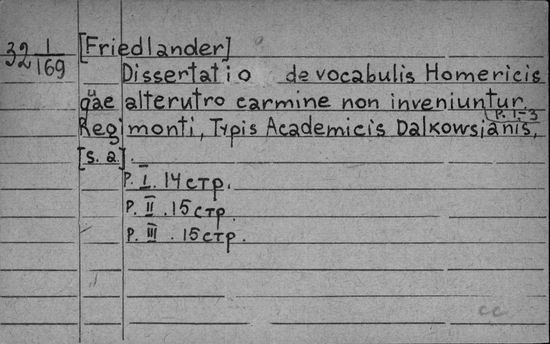 32 1/169 [Friedlander]
Dissertatio de vocabulis Homericis
qǔae alterutro carmine non inveniuntur.
P. 1-3
Regimonti, Typis Academicis Dalkowsianis,
[s. a.].
P. I. 14 стр.
P. II. 15 стр.
P. III. 15 стр.
cc